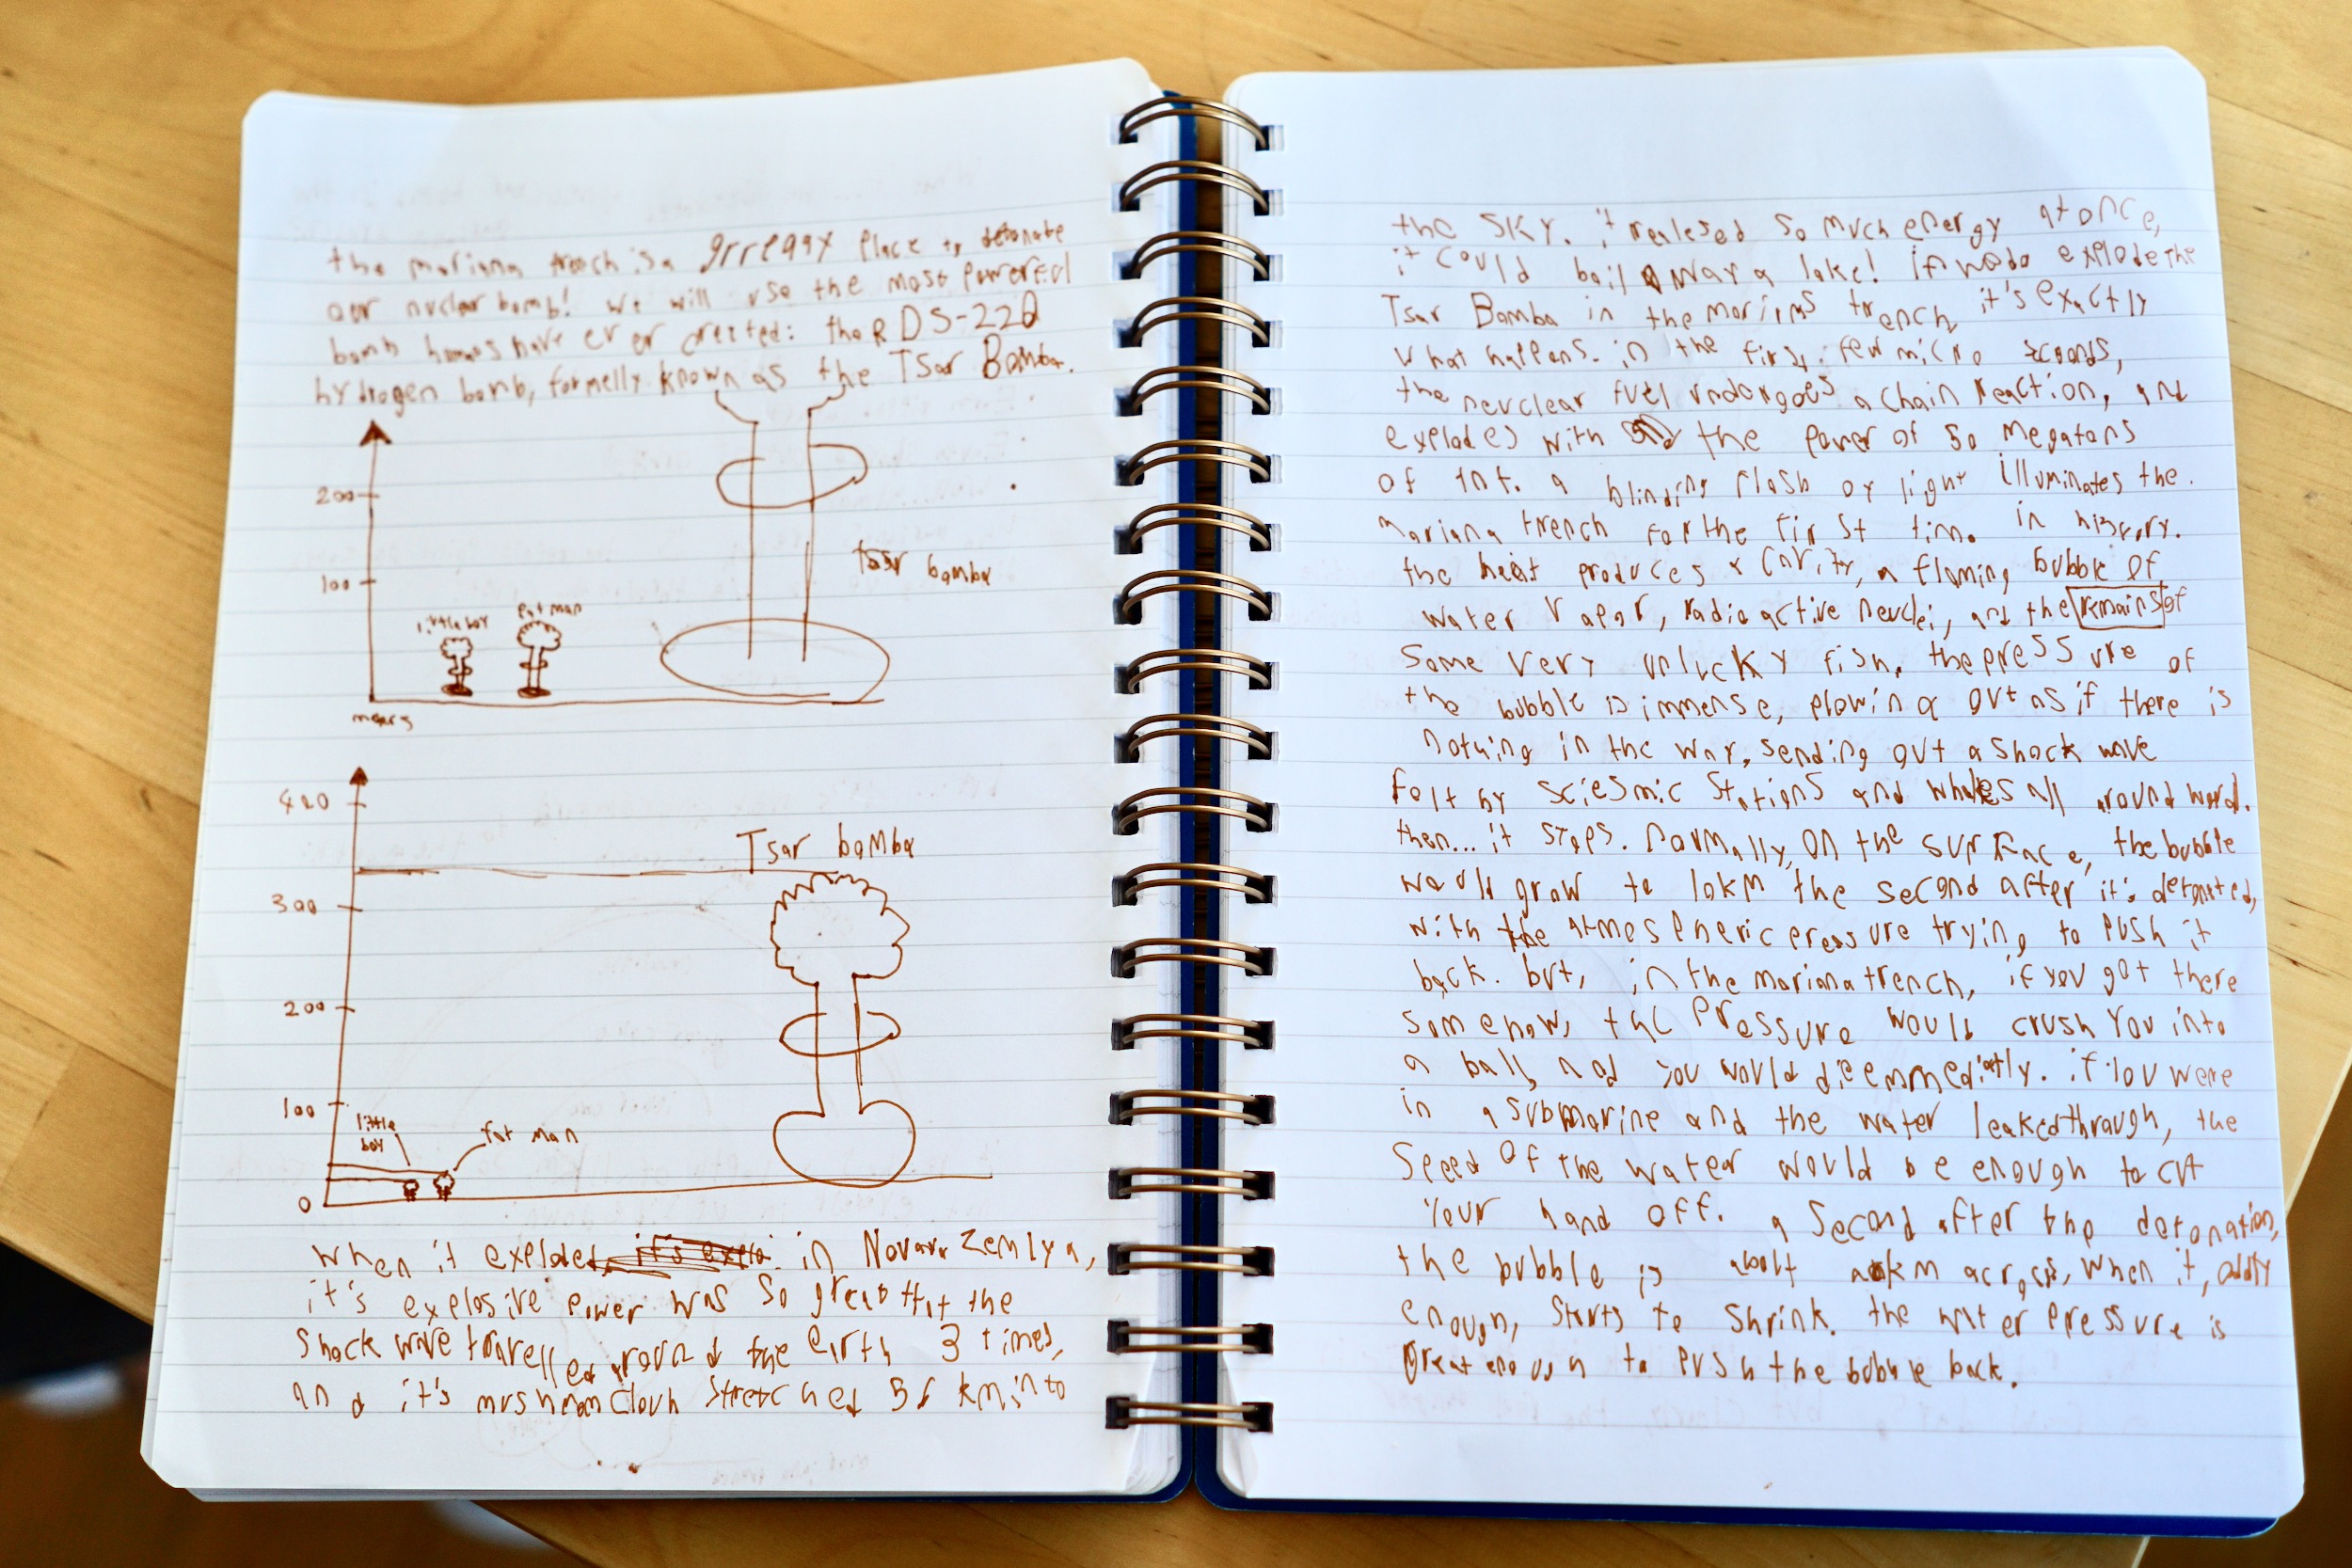 the mariana trench is a grreqqy place to detonate
our nuclear bomb! we will use the most powerful
bomb have ever created: the RDS-220
hydrogen bomb, formelly known as the Tsar Bomba.
200
100
little boy
fat man
tsar bomba
420
300
200
100
0
Tsar bomba
little
boy
fat man
when it explodet in Zemlya,
it's explosive power was so great that the
shock wave travelled around the earth 3 times,
and it's cloud stretched km into
the sky. it realesed so much energy at once,
it could boil away a lake! if we do explode the
Tsar Bomba in the mariana trench, it's exactly
what happens. in the first few micro seconds,
the neuclear fuel undergoes a chain reaction, and
explodes with the power of 50 megatons
of tnt. a blinding flash of light illuminates the
mariana trench for the first time in history.
the heat produces a cavity, a flaming bubble of
water vapor, radioactive neuclei, and the remains of
some very unlucky fish. the pressure of
the bubble is immense, plowing out as if there is
nothing in the way, sending out a shock wave
felt by sciesmic stations and whales all around world.
then... it stops. normally, on the surface, the bubble
would grow to 10km the second after it's detonated,
with the atmospheric pressure trying to push it
back. but, in the mariana trench, if you got there
somehow, the pressure would crush you into
a ball, and you would die emmediatly. if you were
in a submarine and the water leaked through, the
speed of the water would be enough to cut
your hand off. a second after the detonation,
the bubble is about km across, when it, oddly
enough, starts to shrink. the water pressure is
great enough to push the bubble back.